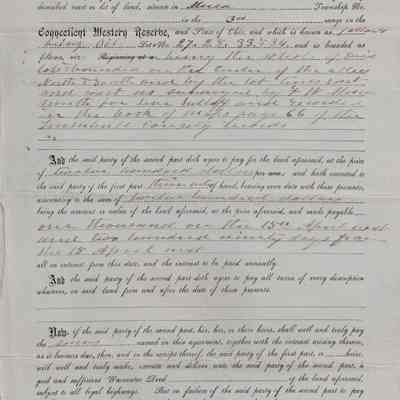 described tract or lot of land, situate in Mecca Township No.
in the 3rd range in the
Connecticut Western Reserve, and State of Ohio, and which is known as follows
Lots 27. 28. 33. & 34, and is bounded as
follows: Beginning at a being the whole of
lots bounded on the
North & South and by the lot lines East
and West as surveyed by
and recorded
in the book of maps page 66 of the
Trumbull County
And the said party of the second part doth agree to pay for the land aforesaid, at the price
of twelve hundred dollars per acre, and both executed to
the said party of the first part of hand, bearing even date with these presents,
amounting to the sum of twelve hundred dollars
being the amount or value of the land aforesaid, at the price aforesaid, and made payable
one thousand on the 15th April next
and two hundred ninety days from
the 15 April next
all on interest from this date, and the interest to be paid annually.
And the said party of the second part doth agree to pay all taxes of every description
whatever, on said land from and after the date of these presents.
Now, if the said party of the second part, his, her, or their heirs, shall well and truly pay
the named in this agreement, together with the interest arising thereon,
as it becomes due, then, and in the receipt thereof, the said party of the first part, or heirs,
will well and truly make, execute and deliver unto the said party of the second part, a
good and sufficient Warrantee Deed of the land aforesaid,
subject to all legal highways. But on failure of the said party of the second part to pay